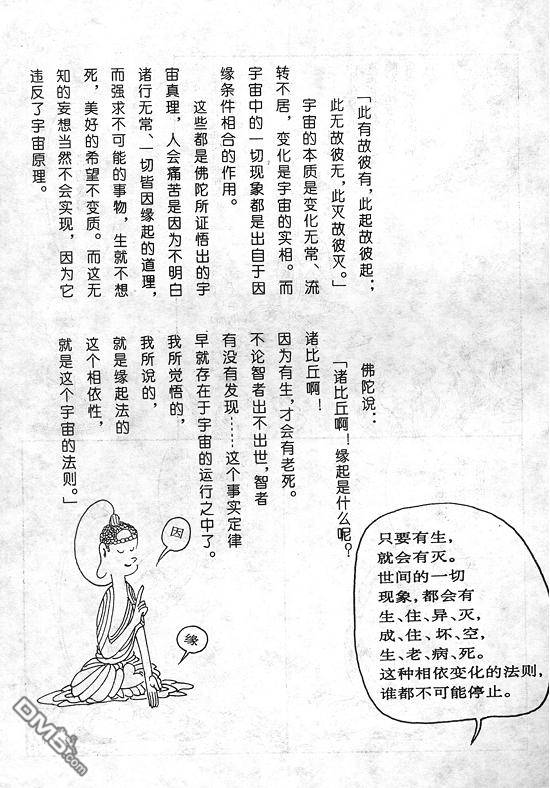 「此有故彼有，此起故彼起；
此无故彼无，此灭故彼灭。」
宇宙的本质是变化无常、流
转不居，变化是宇宙的实相。而
宇宙中的一切现象都是出自于因
缘条件相合的作用。
这些都是佛陀所证悟出的宇
宙真理，人会痛苦是因为不明白
诸行无常、一切皆因缘起的道理，
而强求不可能的事物，生就不想
死，美好的希望不变质。而这无
知的妄想当然不会实现，因为它
违反了宇宙原理。
佛陀说：
「诸比丘啊！缘起是什么呢？
诸比丘啊！
因为有生，才会有老死。
不论智者出不出世，智者
有没有发现……这个事实定律
早就存在于宇宙的运行之中了。
我所觉悟的，
我所说的，
就是缘起法的
这个相依性，
就是这个宇宙的法则。」
只要有生，
就会有灭。
世间的一切
现象，都会有
生、住、异、灭，
成、住、坏、空，
生、老、病、死。
这种相依变化的法则，
谁都不可能停止。
因
缘
DM5.com